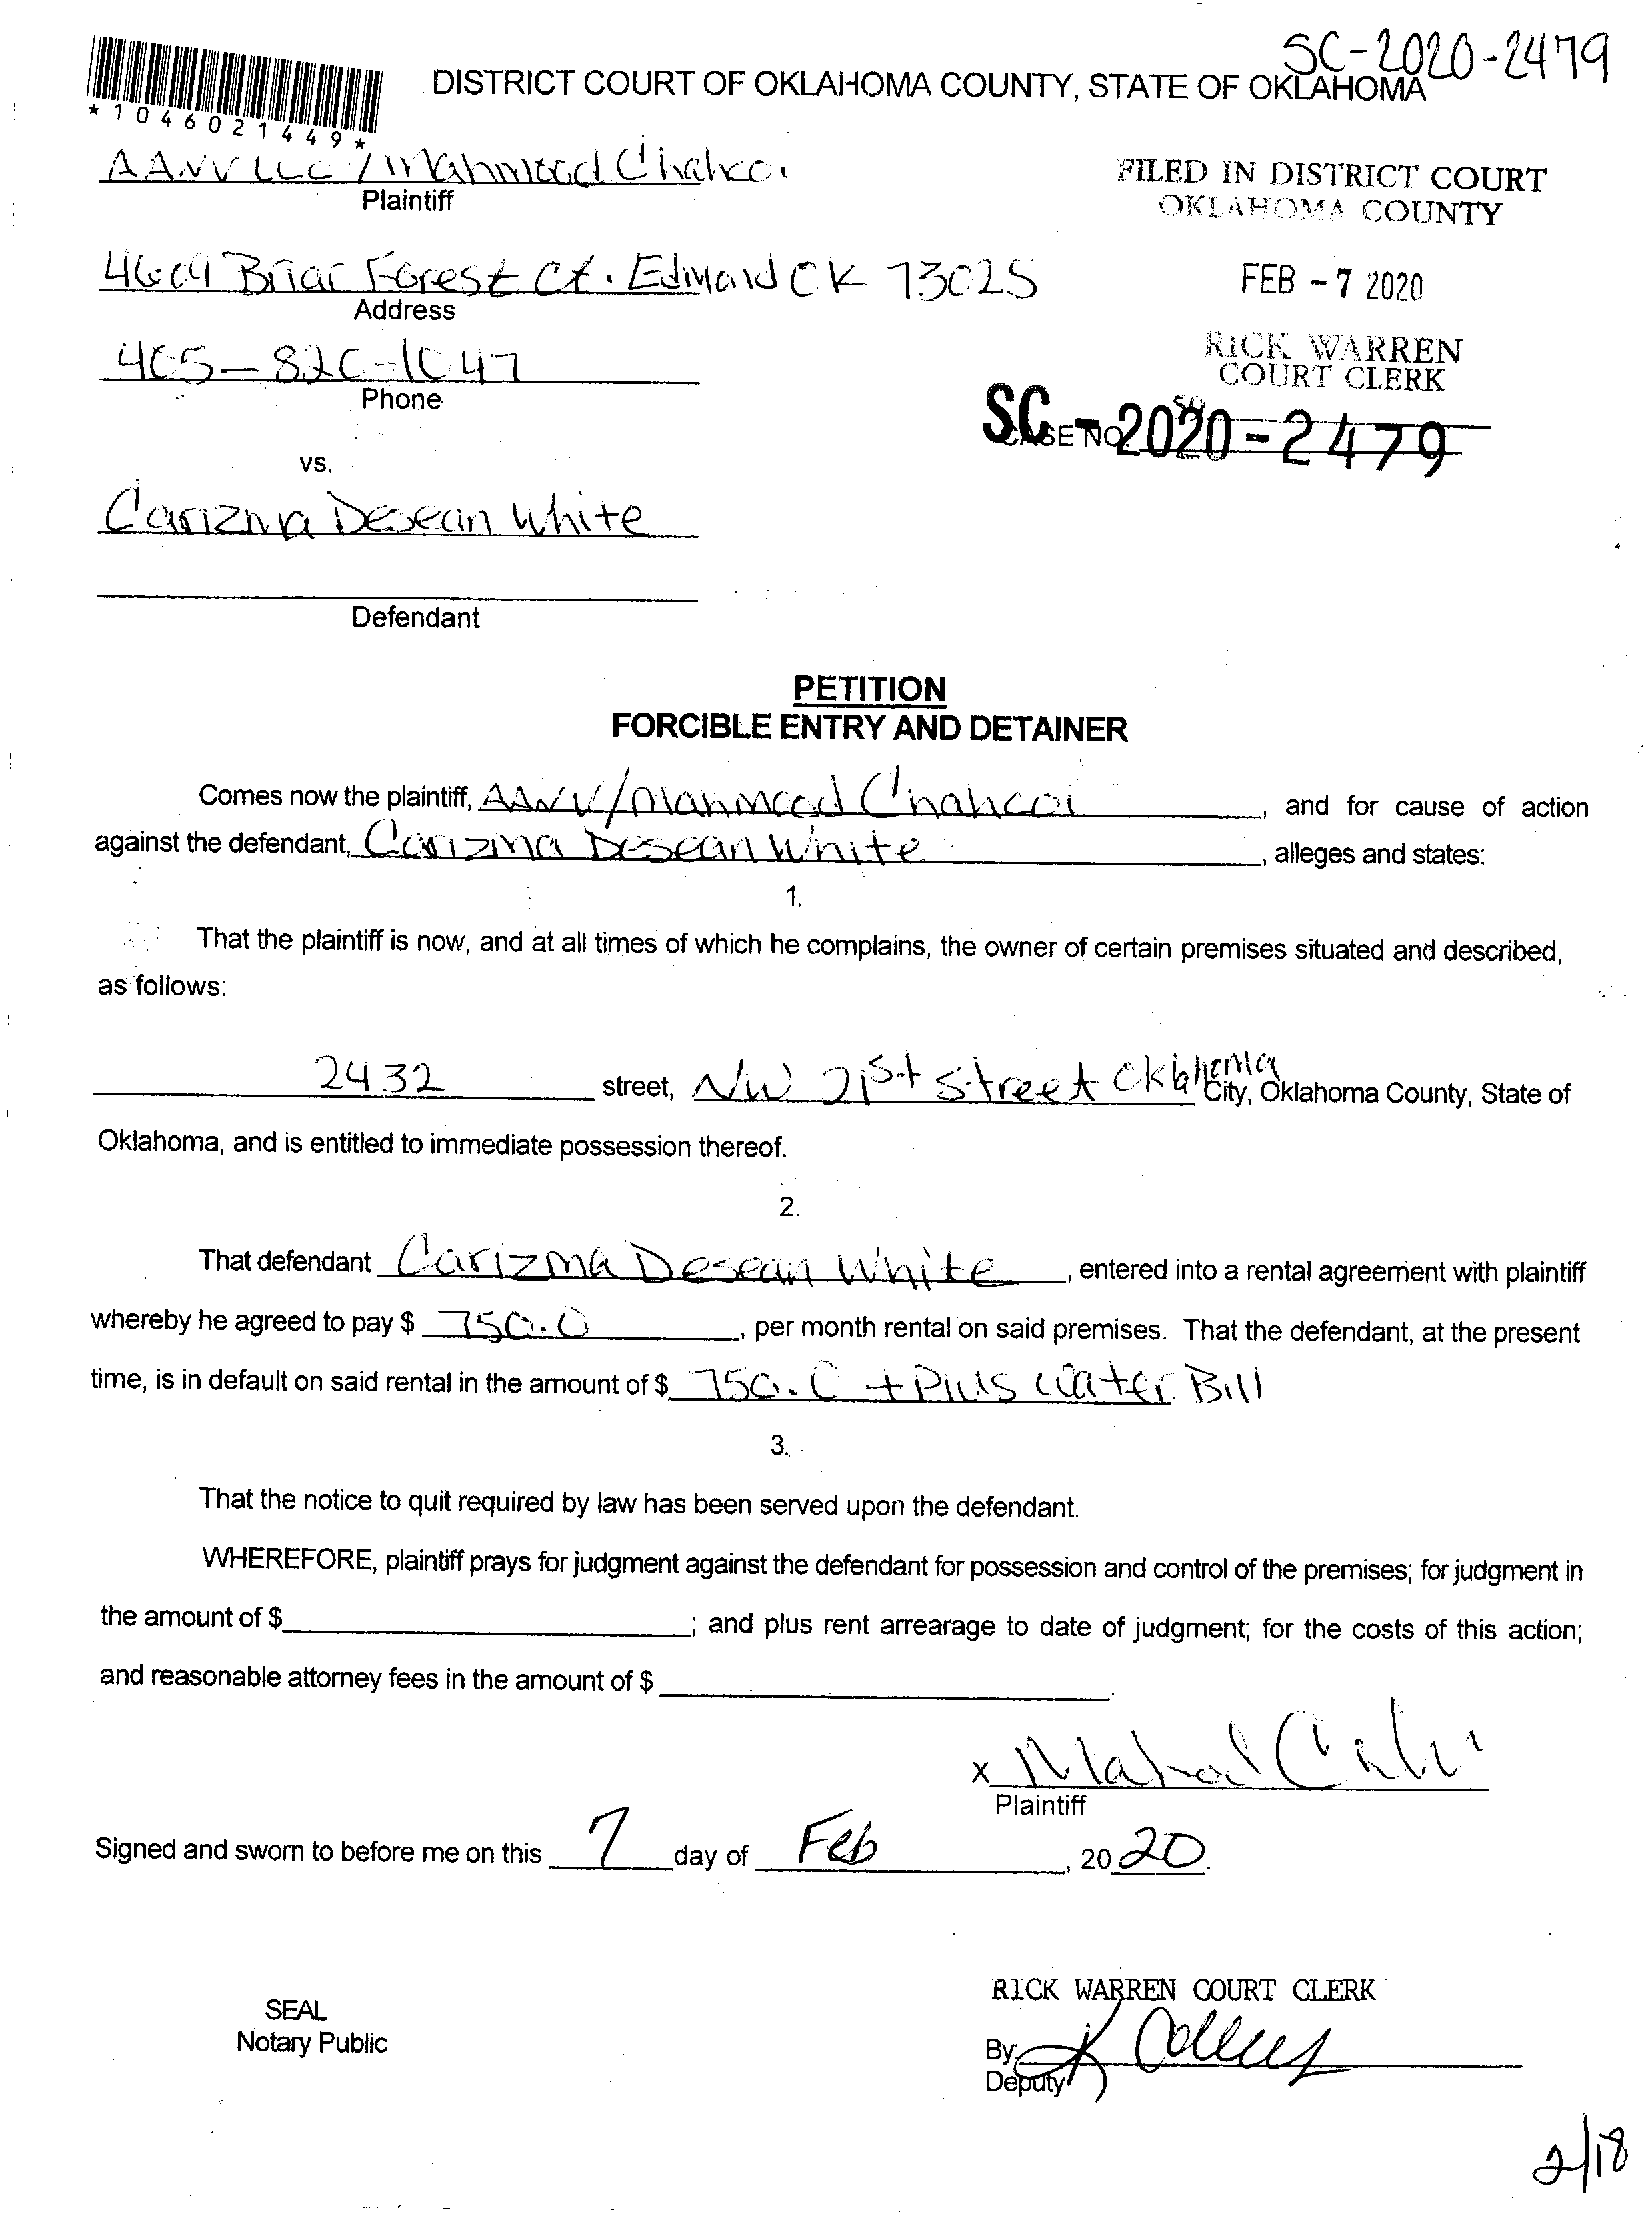 SC-2020-2479
DISTRICT COURT OF OKLAHOMA COUNTY, STATE OF OKLAHOMA
*1046021449*
AANV LLC / Mahmood Chahooi
Plaintiff
FILED IN DISTRICT COURT
OKLAHOMA COUNTY
4609 Briar Forest Ct. Edmond OK 73025
Address
FEB - 7 2020
RICK WARREN
COURT CLERK
405-820-1047
Phone
SC - 2020 - 2479
CASE NO.
vs.
Carizma Desean White
Defendant
PETITION
FORCIBLE ENTRY AND DETAINER
Comes now the plaintiff, AANV/Mahmood Chahooi, and for cause of action
against the defendant, Carizma Desean White, alleges and states:
1.
That the plaintiff is now, and at all times of which he complains, the owner of certain premises situated and described,
as follows:
2432 street, NW 21st Street Oklahoma City, Oklahoma County, State of
Oklahoma, and is entitled to immediate possession thereof.
2.
That defendant Carizma Desean White, entered into a rental agreement with plaintiff
whereby he agreed to pay $ 750.0, per month rental on said premises. That the defendant, at the present
time, is in default on said rental in the amount of $ 750.0 + Plus Water Bill
3.
That the notice to quit required by law has been served upon the defendant.
WHEREFORE, plaintiff prays for judgment against the defendant for possession and control of the premises; for judgment in
the amount of $ ; and plus rent arrearage to date of judgment; for the costs of this action;
and reasonable attorney fees in the amount of $
x
Plaintiff
Signed and sworn to before me on this 7 day of Feb, 2020.
RICK WARREN COURT CLERK
SEAL
Notary Public
By
Deputy
2/18